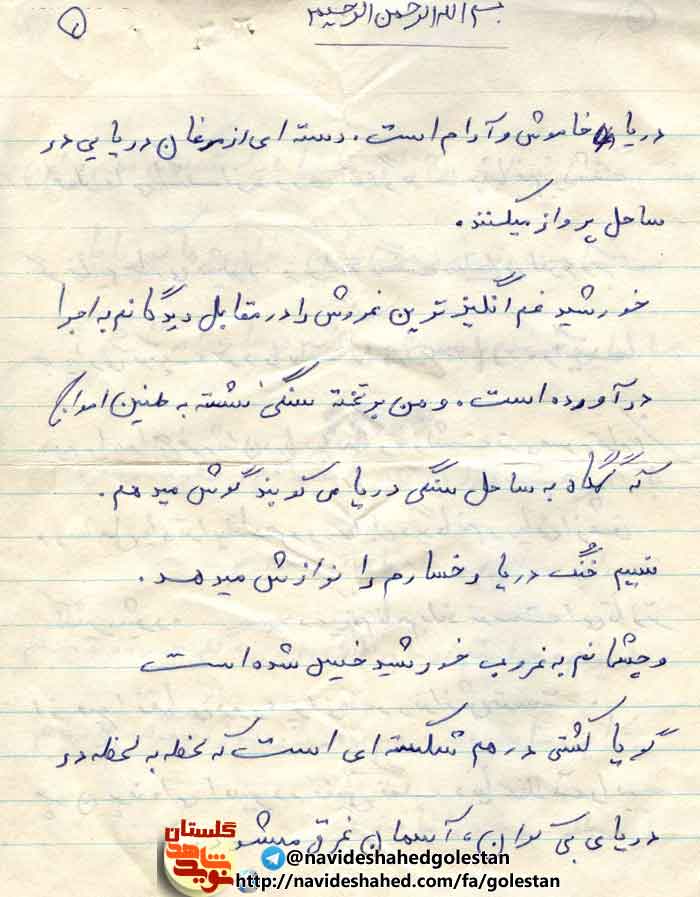 بسم الله الرحمن الرحیم
۱
دریا خاموش و آرام است. دسته ای از مرغان دریایی در
ساحل پرواز میکنند.
خورشید غم انگیز ترین غروبش را در مقابل دیدگانم به اجرا
در آورده است. و من بر تخته سنگی نشسته به طنین امواج
که گهگاه به ساحل سنگی دریا می کوبند گوش میدهم.
نسیم خنک دریا رخسارم را نوازش میدهد.
و چشمانم به غروب خورشید خیره شده است
گویا کشتی در هم شکسته ای است که لحظه به لحظه در
دریای بی کران، آسمان غرق میشود
گلستان
نوید شاهد
@navideshahedgolestan
http://navideshahed.com/fa/golestan